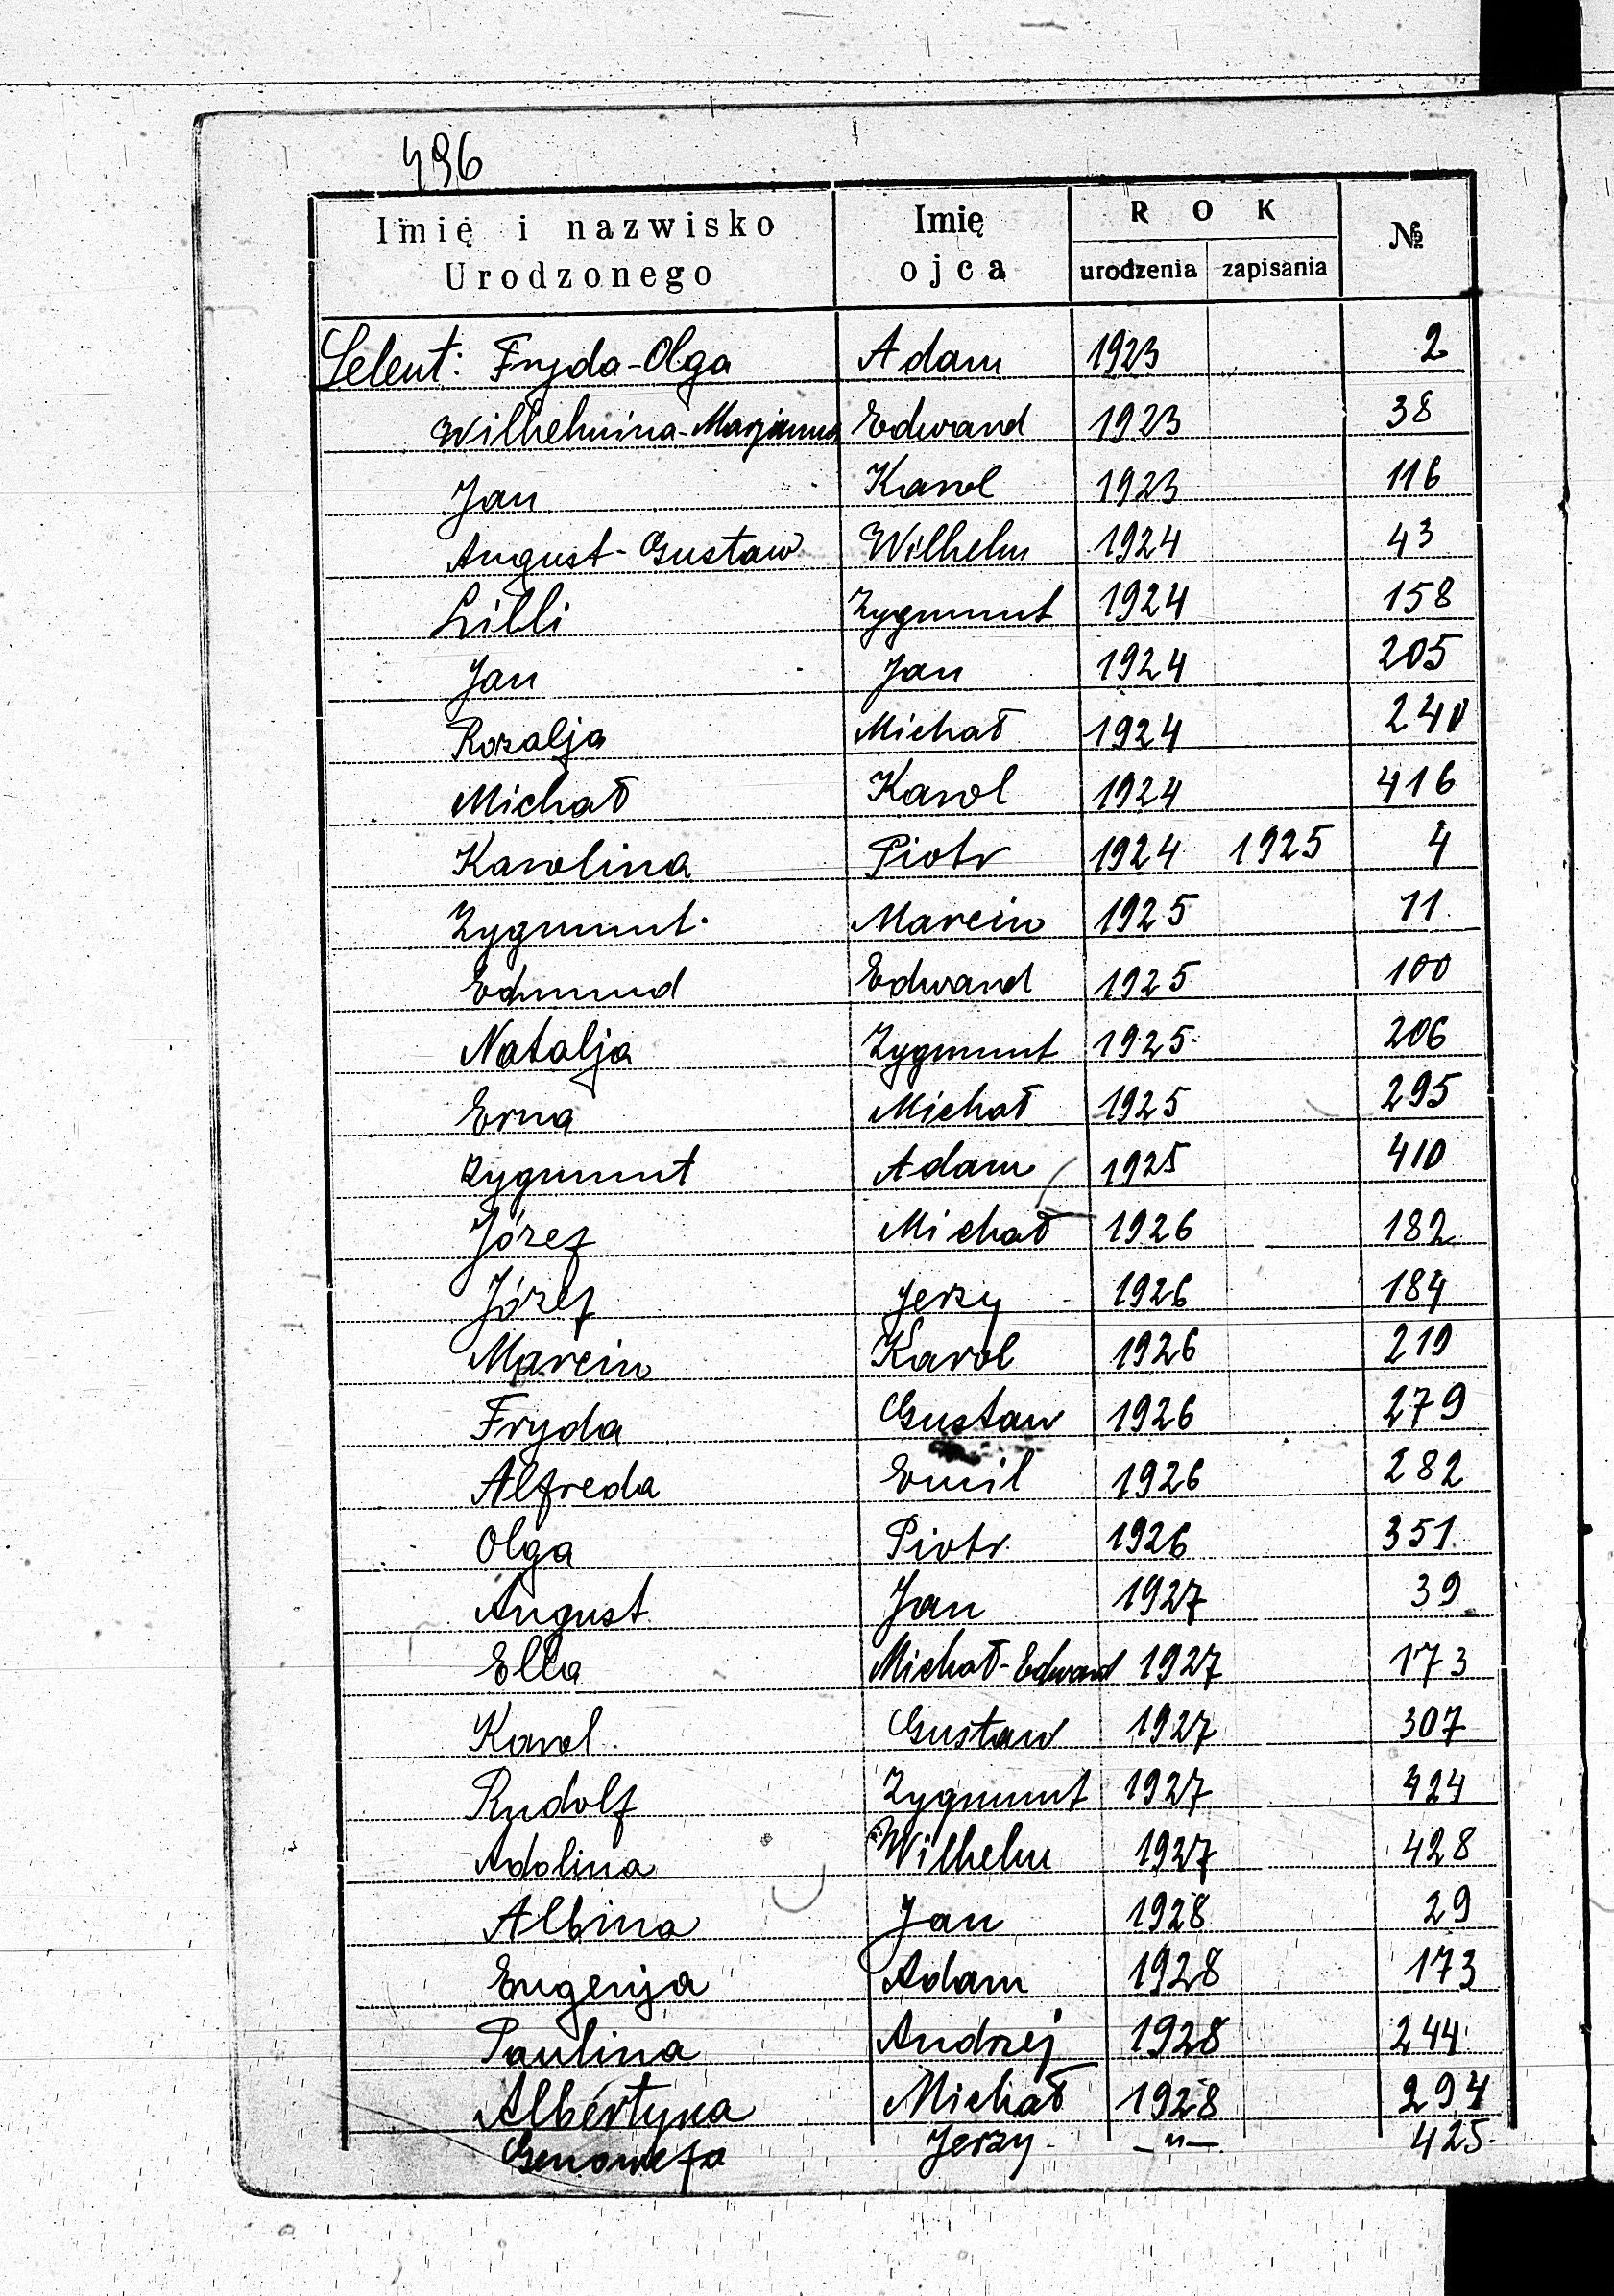 496
Imię i nazwisko Urodzonego Imię ojca ROK urodzenia zapisania №
Selent: Fryda-Olga Adam 1923 2
Wilhelmina-Marjanna Edward 1923 38
Jan Karol 1923 116
August-Gustaw Wilhelm 1924 43
Lilli Zygmunt 1924 158
Jan Jan 1924 205
Rozalja Michał 1924 240
Michał Karol 1924 416
Karolina Piotr 1924 1925 4
Zygmunt Marcin 1925 11
Edmund Edward 1925 100
Natalja Zygmunt 1925 206
Erna Michał 1925 295
Zygmunt Adam 1925 410
Józef Michał 1926 182
Józef Jerzy 1926 184
Marcin Karol 1926 219
Fryda Gustaw 1926 279
Alfreda Emil 1926 282
Olga Piotr 1926 351
August Jan 1927 39
Ella Michał-Edward 1927 173
Karol Gustaw 1927 307
Rudolf Zygmunt 1927 424
Adolina Wilhelm 1927 428
Albina Jan 1928 29
Eugenja Adam 1928 173
Paulina Andrzej 1928 244
Albertyna Michał 1928 294
Genowefa Jerzy -"- 425